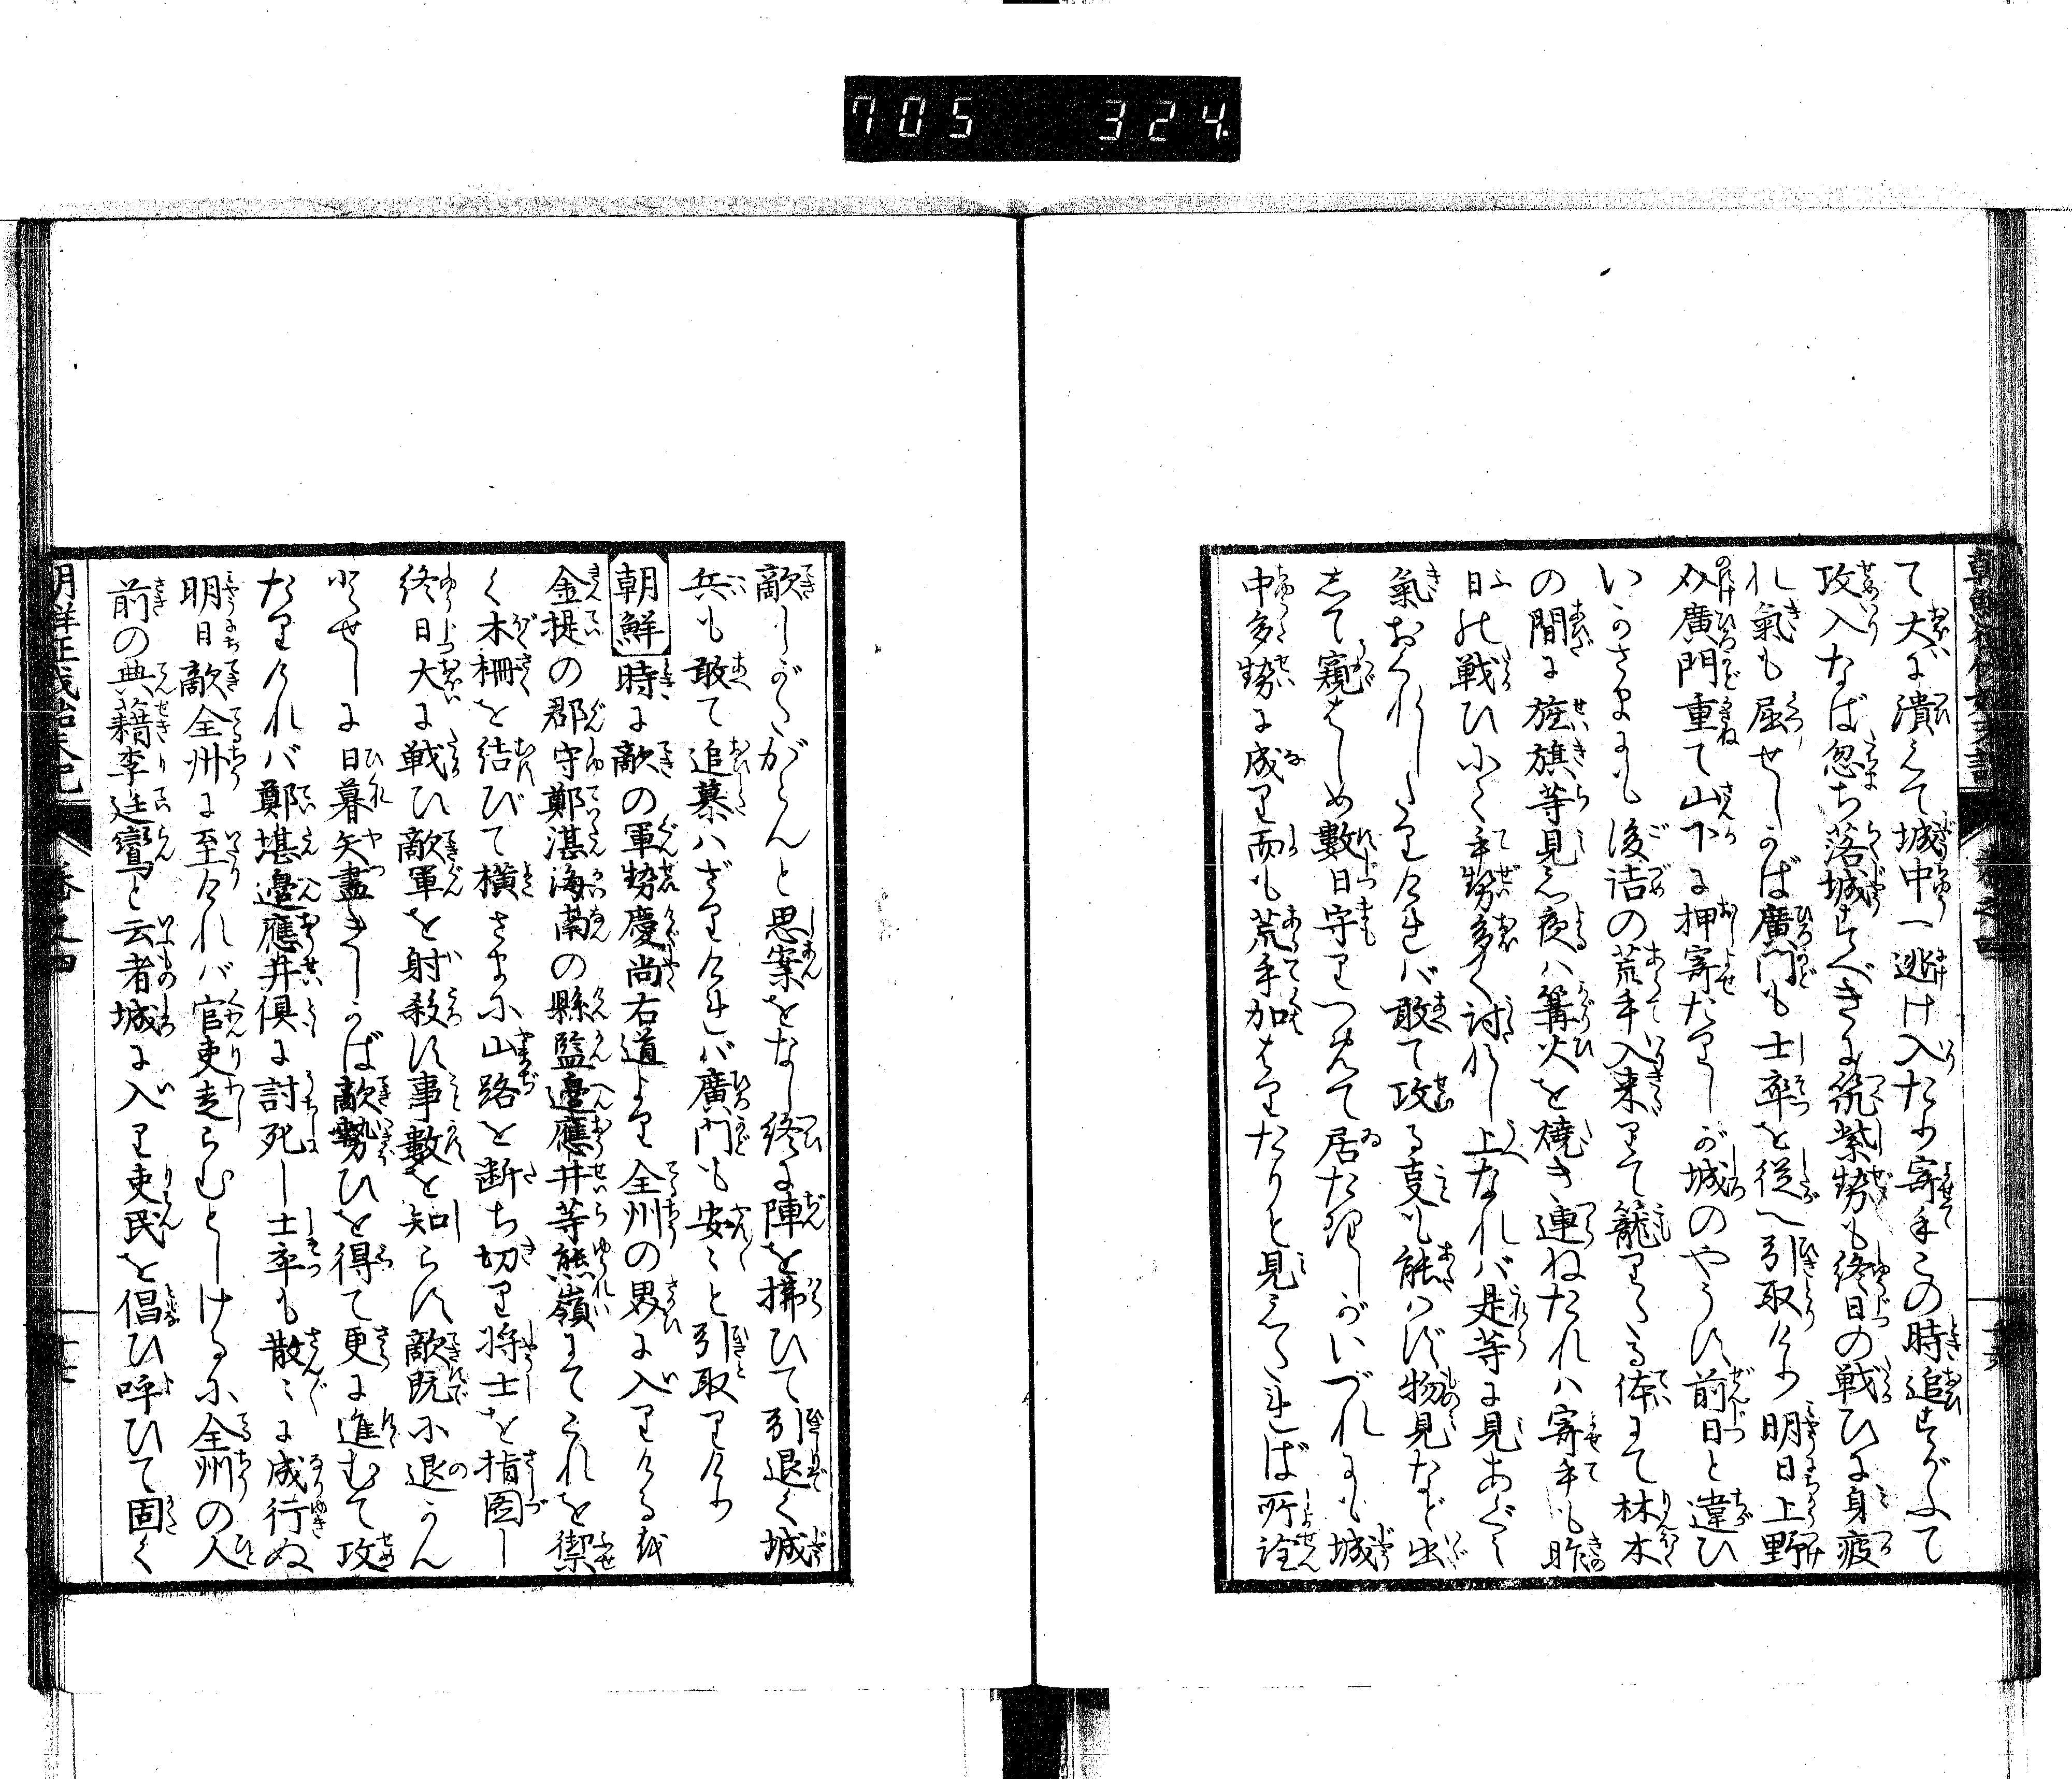 705 324
て大に潰えて城中へ逃け入たり寄手この時追すがふて
攻入なば忽ち落城すべきに筑紫勢も終日の戦ひに身疲
れ氣も屈せしかば廣門も士卒を従へ引取けり明日上野
介廣門重て山下に押寄たりしが城のやうす前日と違ひ
いかさまにも後詰の荒手入来りて籠りたる体にて林木
の間に旌旗等見え夜ハ篝火を焼き連ねたれハ寄手も昨
日の戦ひにく手勢多く討れし上なれバ是等に見あぐミ
氣おくれしたりけれバ敢て攻る支も能ハず物見など出
して窺はしめ數日守りつめて居たりしがいづれにも城
中多勢に成り而も荒手加はりたりと見えたれば所詮
敵しがたがらんと思案をなし終に陣を拂ひて引退く城
兵も敢て追慕ハざりけれバ廣門も安ミと引取りけり
朝鮮 時に敵の軍勢慶尚右道より全州の界に入りける折
金提の郡守鄭湛海南の縣監邉應井等熊嶺にてこれを禦
く木柵を結びて横さまに山路を断ち切り将士を指圖し
終日大に戦ひ敵軍を射殺す事數を知らす敵既に退かん
とせしに日暮矢盡きしかば敵勢ひを得て更に進むて攻
たりけれバ鄭堪邉應井倶に討死し士卒も散ミに成行ぬ
明日敵全州に至けれバ官吏走らむとしけるに全州の人
前の典籍李廷鸞と云者城に入り吏民を倡ひ呼ひて固く
朝鮮征伐始末記 巻之四